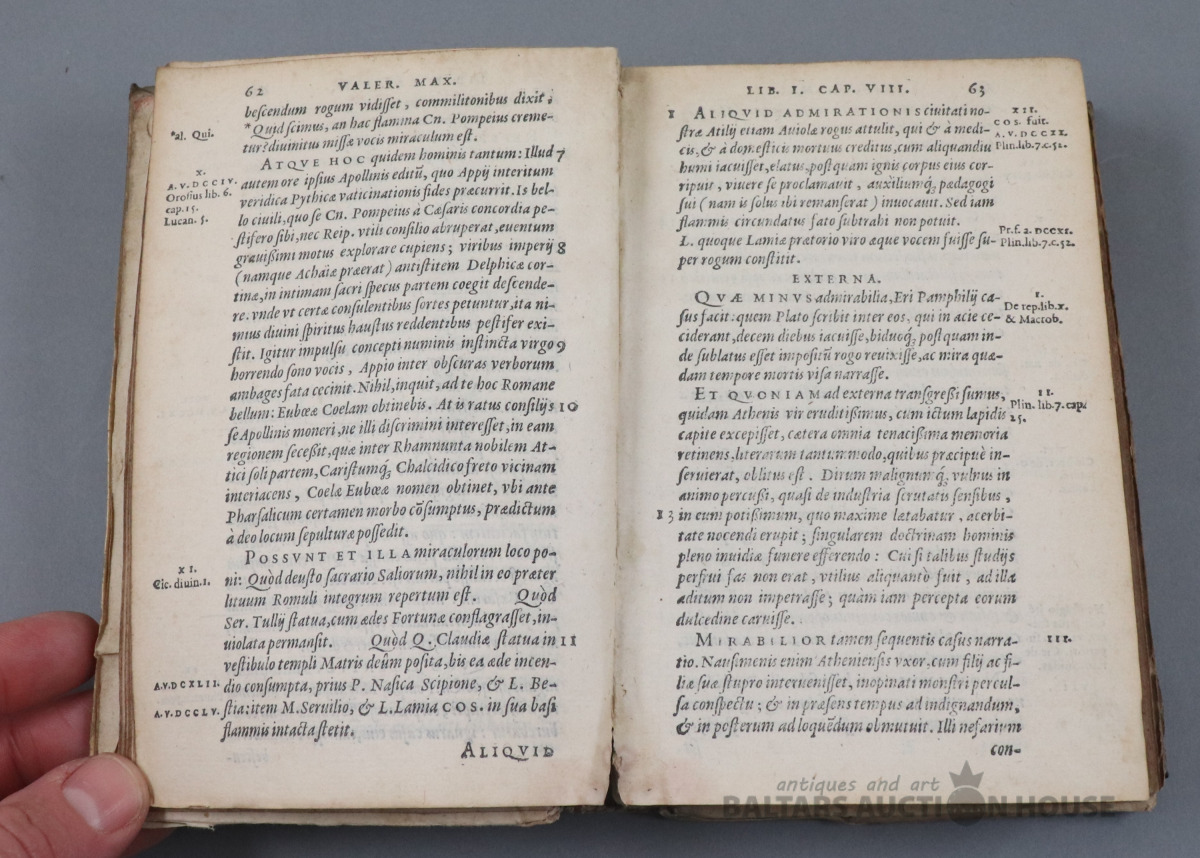 62 VALER. MAX.
bescendum rogum vidisset, commilitonibus dixit:
*al. Qui.
*Quid scimus, an hac flamma Cn. Pompeius creme-
tur? diuinitus missæ vocis miraculum est.
ATQVE HOC quidem hominis tantum: Illud 7
X.
A.V.DCCIV.
Orosius lib. 6.
cap. 15.
Lucan. 5.
autem ore ipsius Apollinis editū, quo Appij interitum
veridica Pythicæ vaticinationis fides præcurrit. Is bel-
lo ciuili, quo se Cn. Pompeius à Cæsaris concordia pe-
stifero sibi, nec Reip. vtili consilio abruperat, euentum
grauissimi motus explorare cupiens; viribus imperij 8
(namque Achaiæ præerat) antistitem Delphicæ cor-
tinæ, in intimam sacri specus partem coegit descende-
re. vnde vt certæ consulentibus sortes petuntur, ita ni-
mius diuini spiritus haustus reddentibus pestifer exi-
stit. Igitur impulsu concepti numinis instincta virgo 9
horrendo sono vocis, Appio inter obscuras verborum
ambages fata cecinit. Nihil, inquit, ad te hoc Romane
bellum: Eubœæ Coelam obtinebis. At is ratus consilijs 10
se Apollinis moneri, ne illi discrimini interesset, in eam
regionem secessit, quæ inter Rhamnunta nobilem At-
tici soli partem, Caristumq́; Chalcidico freto vicinam
interiacens, Coelæ Eubœæ nomen obtinet, vbi ante
Pharsalicum certamen morbo cōsumptus, prædictum
à deo locum sepultura possedit.
XI.
Cic. diuin. 1.
POSSVNT ET ILLA miraculorum loco po-
ni: Quòd deusto sacrario Saliorum, nihil in eo præter
lituum Romuli integrum repertum est. Quòd
Ser. Tullij statua, cum ædes Fortunæ conflagrasset, in-
uiolata permansit. Quòd Q. Claudiæ statua in 11
vestibulo templi Matris deûm posita, bis ea æde incen-
A.V.DCXLII. dio consumpta, prius P. Nasica Scipione, & L. Be-
A.V.DCCLV. stia: item M. Seruilio, & L. Lamia COS. in sua basi
flammis intacta stetit.
ALIQVID
LIB. I. CAP. VIII. 63
1 ALIQVID ADMIRATIONIS ciuitati no-
XII.
COS. fuit.
A.V.DCCXX.
Plin. lib. 7. c. 52.
stræ Atilij etiam Auiolæ rogus attulit, qui & à medi-
cis, & à domesticis mortuus creditus, cum aliquandiu
humi iacuisset, elatus, postquam ignis corpus eius cor-
ripuit, viuere se proclamauit, auxiliumq́; pædagogi
sui (nam is solus ibi remanserat) inuocauit. Sed iam
flammis circundatus fato subtrahi non potuit.
Pr. f. 2. DCCXI.
Plin. lib. 7. c. 52.
L. quoque Lamiæ prætorio viro æque vocem fuisse su-
per rogum constitit.
EXTERNA.
I.
De rep. lib. X.
& Macrob.
QVÆ MINVS admirabilia, Eri Pamphilij ca-
sus facit: quem Plato scribit inter eos, qui in acie ce-
ciderant, decem diebus iacuisse, biduoq́; postquam in-
de sublatus esset impositū rogo reuixisse, ac mira quæ-
dam tempore mortis visa narrasse.
II.
Plin. lib. 7. cap.
25.
ET QVONIAM ad externa transgressi sumus,
quidam Athenis vir eruditissimus, cum ictum lapidis
capite excepisset, cætera omnia tenacissima memoria
retinens, literarum tantummodo, quibus præcipuè in-
seruierat, oblitus est. Dirum malignumq́; vulnus in
animo percussi, quasi de industria scrutatis sensibus,
13 in eum potissimum, quo maxime lætabatur, acerbi-
tate nocendi erupit; singularem doctrinam hominis
pleno inuidiæ funere efferendo: Cui si talibus studijs
perfrui fas non erat, vtilius aliquantò fuit, ad illæ
aditum non impetrasse; quàm iam percepta eorum
dulcedine caruisse.
MIRABILIOR tamen sequentis casus narra- III.
tio. Nausimenis enim Atheniensis vxor, cum filij ac fi-
liæ suæ stupro interuenisset, inopinati monstri percul-
sa conspectu; & in præsens tempus ad indignandum,
& in posterum ad loquēdum obmutuit. Illi nefarium
con-
antiques and art
BALTARS AUCTION HOUSE